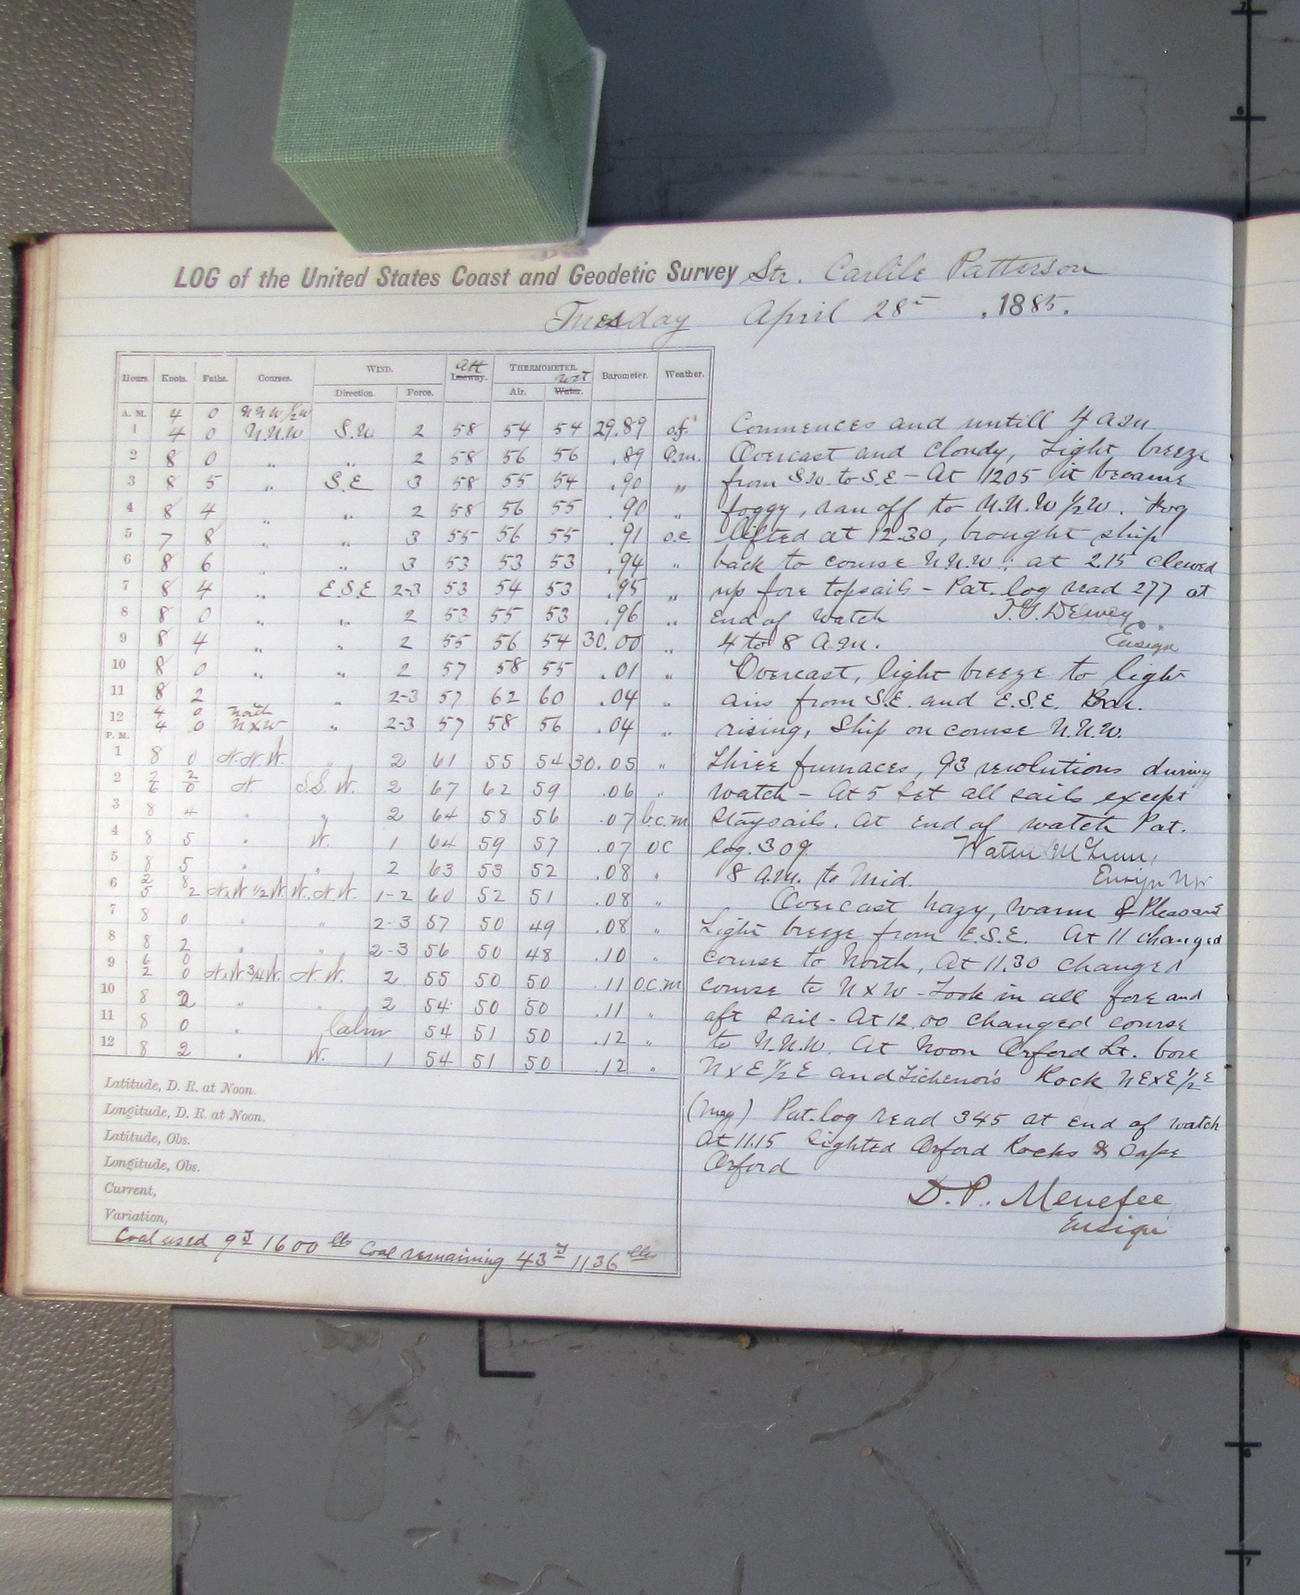 LOG of the United States Coast and Geodetic Survey Str. Carlile Patterson
Tuesday April 28th, 1885.
Hours. Knots. Faths. Courses. WIND. Direction. Force. Att Leeway. THERMOMETER. Air. Wet Water. Barometer. Weather.
A. M. 4 0 N N W 1/2 W
1 4 0 N.N.W S.W 2 58 54 54 29.89 o.f.
2 8 0 " " 2 58 56 56 .89 o.m.
3 8 5 " S.E 3 58 55 54 .90 "
4 8 4 " " 2 58 56 55 .90 "
5 7 8 " " 3 55 56 55 .91 o.c
6 8 6 " " 3 53 53 53 .94 "
7 8 4 " E.S.E 2-3 53 54 53 .95 "
8 8 0 " " 2 53 55 53 .96 "
9 8 4 " " 2 55 56 54 30.00 "
10 8 0 " " 2 57 58 55 .01 "
11 8 2 " 2-3 57 62 60 .04 "
4 0 North
12 4 0 NxW " 2-3 57 58 56 .04 "
P. M.
1 8 0 N.N.W. " 2 61 55 54 30.05 "
2 2 2
6 0 N S.S.W. 2 67 62 59 .06 "
3 8 4 " 2 64 58 56 .07 b.c.m
4 8 5 " W. 1 64 59 57 .07 OC
5 8 5 " " 2 63 53 52 .08 "
6 2 8
5 2 NxW 1/2 W W.N.W. 1-2 60 52 51 .08 "
7 8 0 " " 2-3 57 50 49 .08 "
8 8 2 " " 2-3 56 50 48 .10 "
9 6 0
2 0 NxW 3/4 W N.W. 2 55 50 50 .11 O.C.M
10 8 2 " 2 54 50 50 .11 "
11 8 0 " Calm 54 51 50 .12 "
12 8 2 " W. 1 54 51 50 .12 "
Latitude, D. R. at Noon.
Longitude, D. R. at Noon.
Latitude, Obs.
Longitude, Obs.
Current,
Variation,
Coal used 9T 1600 lbs Coal remaining 43T 1136 lbs
Commences and untill 4 a.m
Overcast and cloudy, Light breeze
from S.W. to S.E - At 1205 it became
foggy, ran off to N.N.W 1/2 W. Fog
lifted at 12.30, brought ship
back to course N.N.W; at 2.15 clewed
up fore topsails - Pat. log read 277 at
end of watch T.G. Dewey
Ensign
4 to 8 A.M.
Overcast, light breeze to light
airs from S.E. and E.S.E. Bar.
rising, Ship on course N.N.W.
Three furnaces, 93 revolutions during
watch - At 5 Set all sails except
Staysails. At end of watch Pat.
log. 309
Ensign
8 A.M. to Mid.
Overcast hazy, warm & Pleasant
Light breeze from E.S.E. At 11 changed
course to North, At 11.30 changed
course to N x W - Took in all fore and
aft sail - At 12.00 changed course
to N.N.W. At Noon Orford Lt. bore
N x E 1/2 E and Tichenor's Rock NExE 1/2 E
(Mag) Pat. log read 345 at end of watch
At 11.15 sighted Orford Rocks & Cape
Orford
D. P. Menefee
Ensign